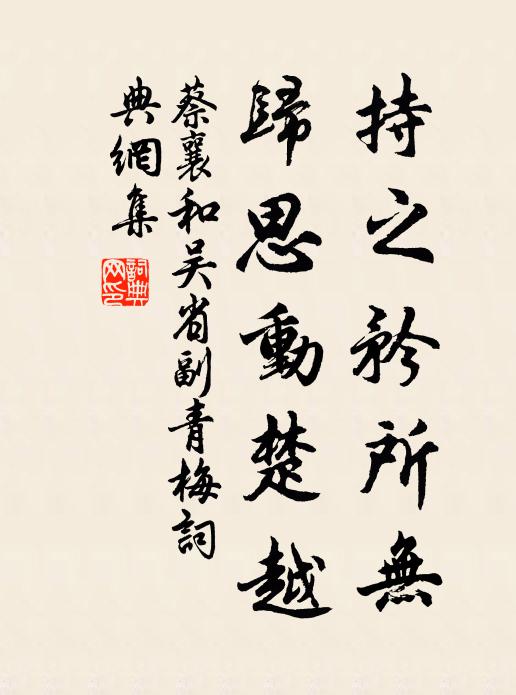 持之矜所無
歸思動楚越
蔡襄和吴省副青梅詞
典網集
詞典
网印